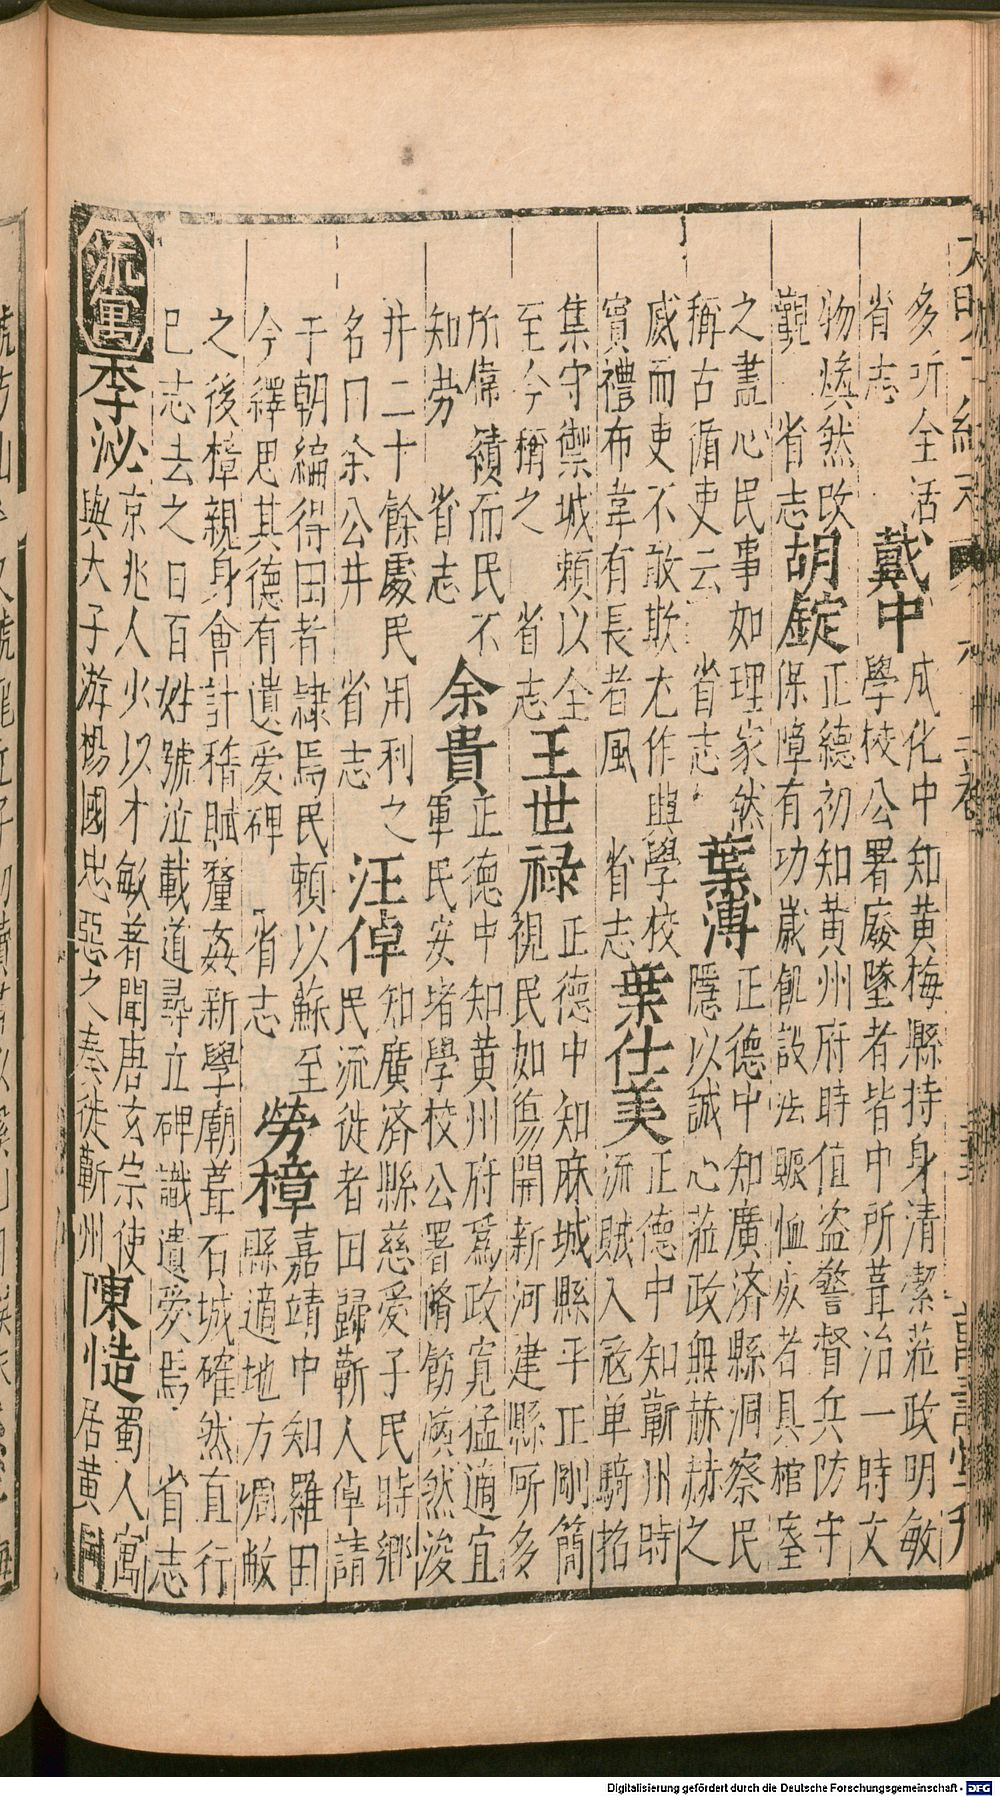 大明一統志 萬壽堂刊
多所全活 戴中 成化中知黃梅縣持身清潔蒞政明敏
省志 學校公署廢墜者皆中所葺治一時文
物煥然改 胡錠 正德初知黃州府時值盜警督兵防守
觀 省志 保障有功歲飢設法賑恤死者具棺窆
之盡心民事如理家然 葉溥 正德中知廣濟縣洞察民
稱古循吏云 省志 隱以誠心蒞政無赫赫之
威而吏不敢欺尤作興學校 葉仕美 正德中知蘄州時
賓禮布韋有長者風 省志 流賊入寇單騎招
集守禦城賴以全 王世祿 正德中知麻城縣平正剛簡
至今稱之 省志 視民如傷開新河建縣所多
所偉績而民不 余貴 正德中知黃州府爲政寬猛適宜
知勞 省志 軍民安堵學校公署脩飭煥然浚
井二十餘處民用利之 汪倬 知廣濟縣慈愛子民時鄉
名曰余公井 省志 民流徙者田歸蘄人倬請
于朝編得田者隷焉民賴以蘇至 勞樟 嘉靖中知羅田
今繹思其德有遺愛碑 省志 縣適地方凋敝
之後樟親身會計稽賦釐姦新學廟葺石城確然直行
己志去之日百姓號泣載道尋立碑識遺愛焉 省志
流寓 李泌 京兆人少以才敏著聞唐玄宗使 陳慥 蜀人寓
與太子游楊國忠惡之奏徙蘄州 居黃岡
Digitalisierung gefördert durch die Deutsche Forschungsgemeinschaft - DFG